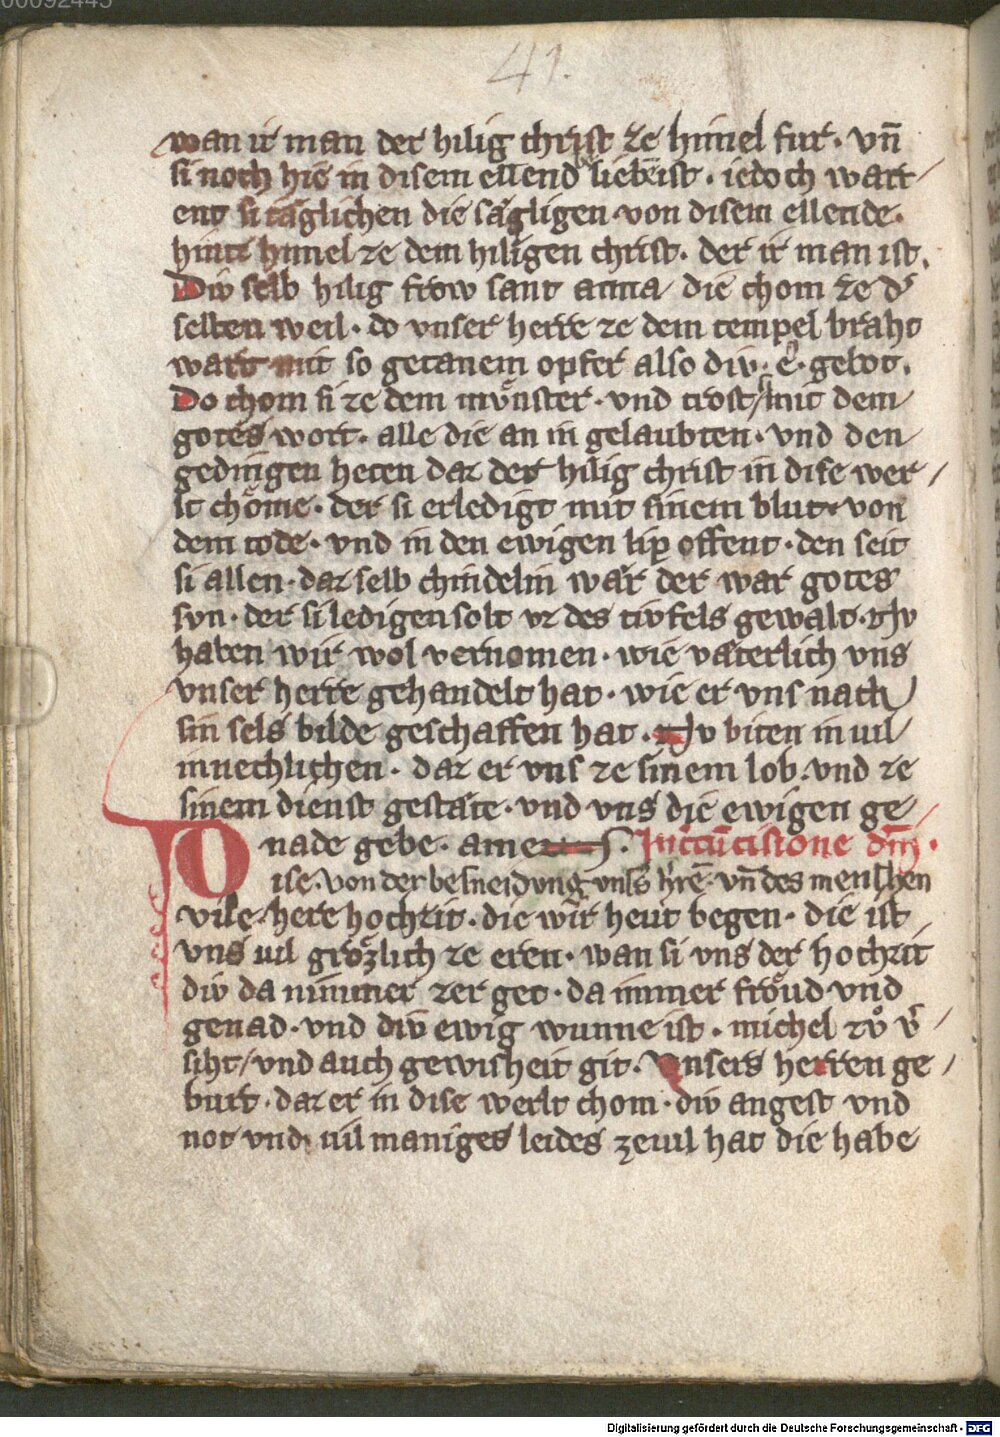 00092445
41.
wan ir man der hilig christ ze himel fur · vn̄
si noch hie in disem ellend beliben ist · iedoch wart
ent si taͤglichen die saͤligen von disem ellende ·
hintz himel ze dem hiligen christ · der ir man ist.
Div selb hilig frow sant anna die chom ze d͛
selben weil · do vnser herre ze dem tempel braht
wart mit so getanem opfer also div · e · gebot.
Do chom si ze dem mvͤnster · vnd trost si mit dem
gotes wort · alle die an in gelaubten · vnd den
gedingen heten daz der hilig christ in dise wer
lt choͤme · der si erledigt mit sinem blut von
dem tode · vnd in den ewigen lip offent · den seit
si allen · daz selb chindelin waͤr der war gotes
svn · der si ledigen solt vz des tivfels gewalt · Nv
haben wir wol vernomen · wie vaterlich vns
vnser herre gehandelt hat · wie er vns nach
sin selbs bilde geschaffen hat · Nv biten in vil
innechlichen · daz er vns ze sinem lob · vnd ze
sinem dienst gestaͤte · vnd vns die ewigen ge
nade gebe · amen · In circūcisione dn̄i ·
Dise · von der besneidvng vnsͤs hr̄e · vn̄ des menschen
vil here hochzit · die wir heut begen · die ist
vns vil groͤzlich ze eren · wan si vns der hochzit
div da nimmer zerget · da immer froͤud vnd
genad · vnd div ewig wunne ist · michel zvͦ v͛
siht / vnd auch gewisheit git · Vnsers herren ge
burt · daz er in dise werlt chom · div angest vnd
not vnd vil maniges leides zewil hat die habe
Digitalisierung gefördert durch die Deutsche Forschungsgemeinschaft - DFG